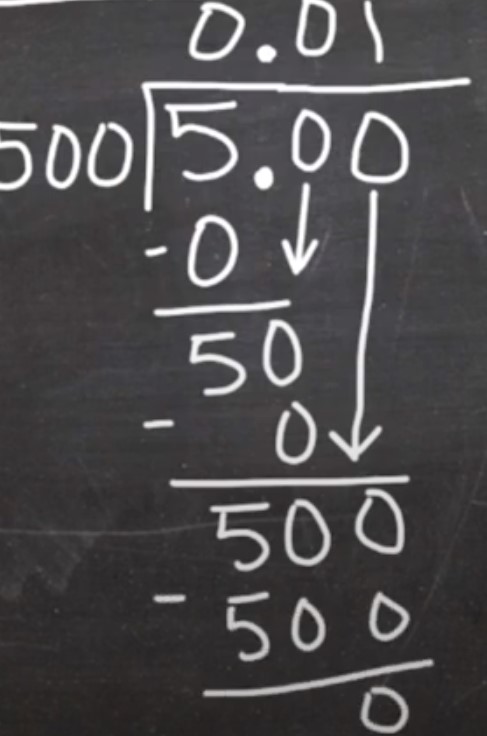 0.01
500 5.00
-0
50
- 0
500
- 500
0